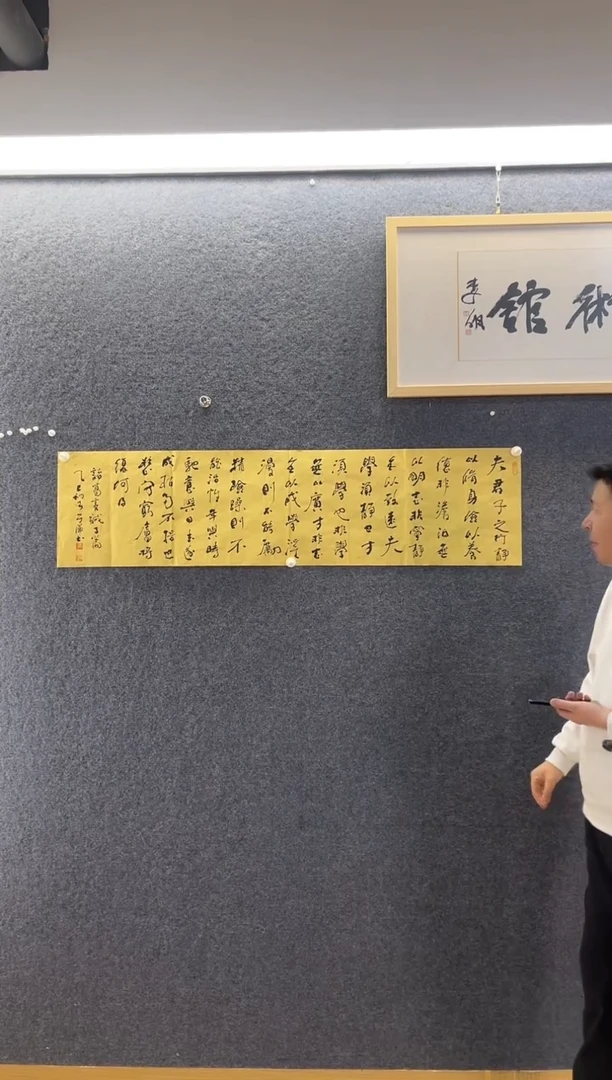 術館
夫君子之行靜
以脩身儉以養
德非澹泊無
以明志非寧靜
無以致遠夫
學須靜也才
須學也非學
無以廣才非志
無以成學淫
慢則不能勵
精險躁則不
能治性年與時
馳意與日去遂
成枯不接世
悲守窮廬將
復何及
諸葛亮誡子篇
乙巳書